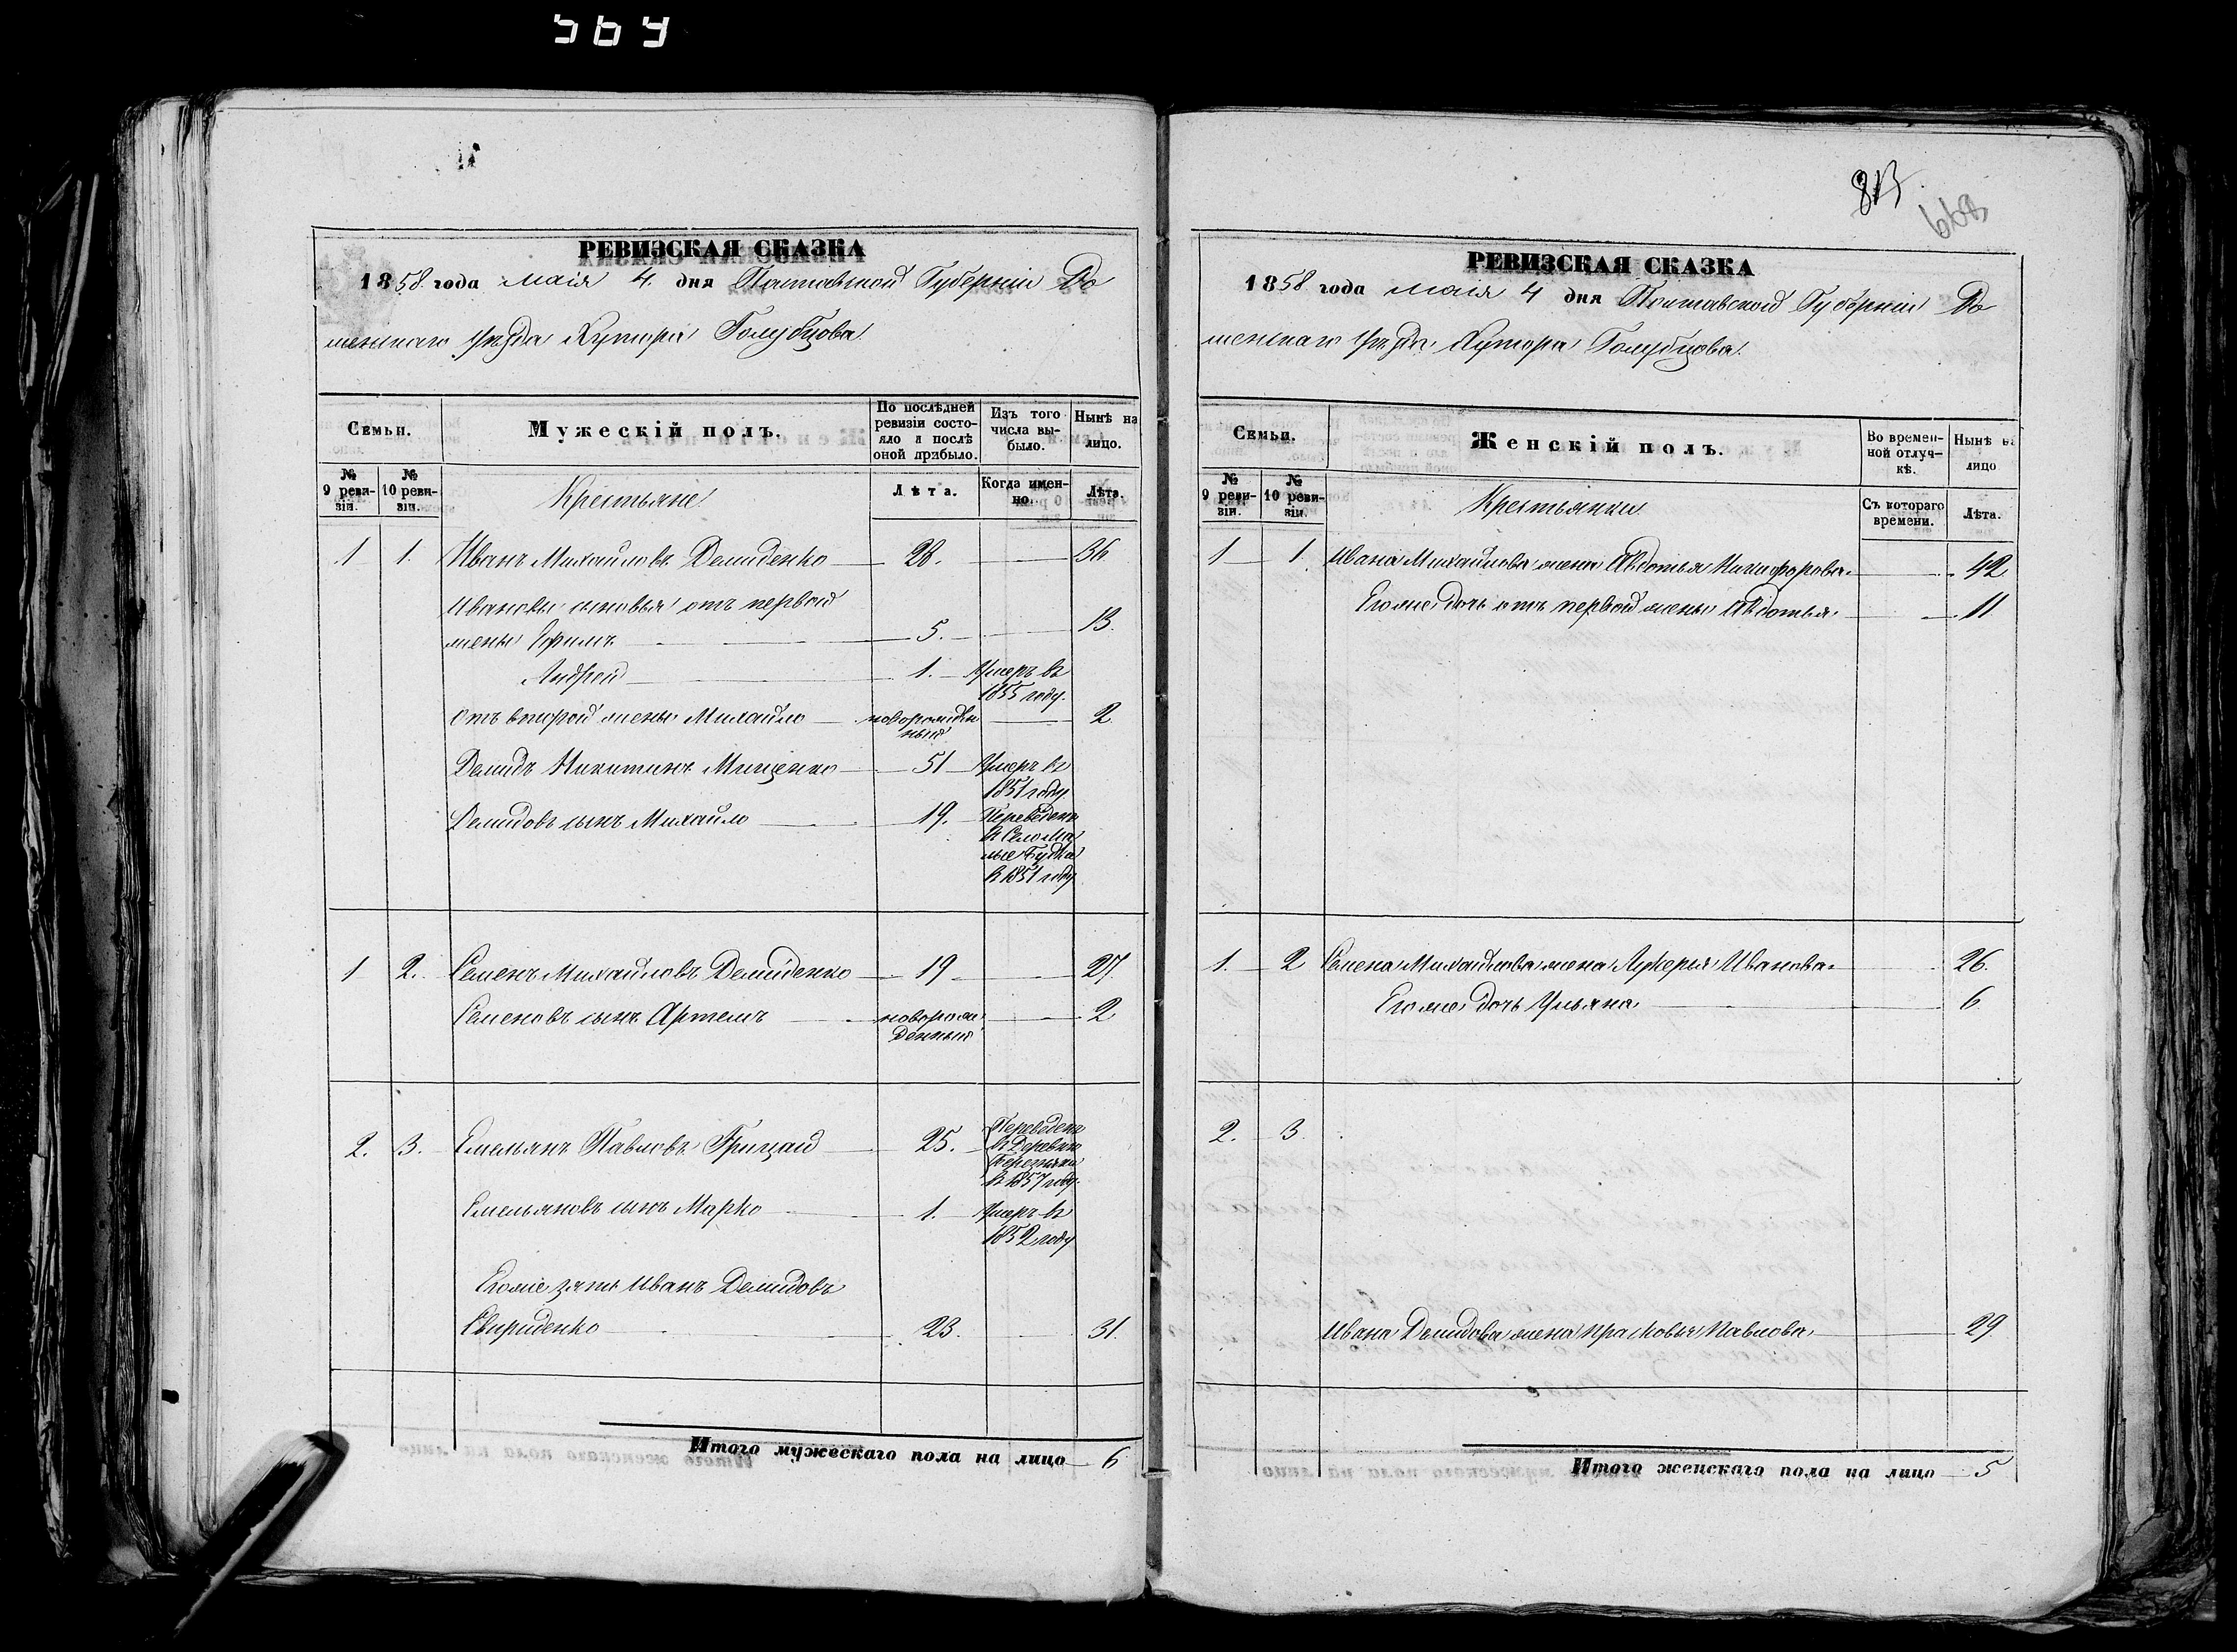 569
РЕВИЗСКАЯ СКАЗКА
1858 года маія 4 дня Полтавской Губерніи Ро
менскаго уѣзда Хутора Голубцова.
Семьи.
Мужескій полъ.
По послѣдней ревизіи состояло и послѣ оной прибыло.
Изъ того числа выбыло.
Нынѣ на лицо.
№ 9 ревизіи.
№ 10 ревизіи.
Крестьяне
Лѣта.
Когда именно.
Лѣта.
1 1. Иванъ Михайловъ Демиденко 28. 36
Ивановы сыновья отъ первой
жены Ефимъ 5. 13.
Андрей 1. Умеръ въ
1855 году.
Отъ второй жены Михайло новорожден
ный 2
Демидъ Никитинъ Мищенко 51 Умеръ въ
1851 году
Демидовъ сынъ Михайло 19. Переведенъ
въ Село Ма
лые Будки
въ 1851 году
1 2. Семенъ Михайловъ Демиденко 19 27.
Семеновъ сынъ Артемъ новорож
денный 2
2. 3. Емельянъ Павловъ Грицай 25. Переведенъ
въ Деревню
въ 1857 году.
Емельяновъ сынъ Марко 1. Умеръ въ
1852 году
Егоже зять Иванъ Демидовъ
Свириденко 23. 31.
Итого мужескаго пола на лицо 6
813
668
РЕВИЗСКАЯ СКАЗКА
1858 года маія 4 дня Полтавской Губерніи Ро
менскаго уѣзда Хутора Голубцова.
Семьи.
Женскій полъ.
Во временной отлучкѣ.
Нынѣ на лицо
№ 9 ревизіи.
№ 10 ревизіи.
Крестьянки
Съ котораго времени.
Лѣта.
1 1. Ивана Михайлова жена Авдотья Никифорова 42
Егоже дочь отъ первой жены Авдотья 11
1. 2 Семена Михайлова жена Лукерья Иванова 26.
Егоже дочь Ульяна 6
2. 3.
Ивана Демидова жена Прасковья Павлова 29
Итого женскаго пола на лицо 5